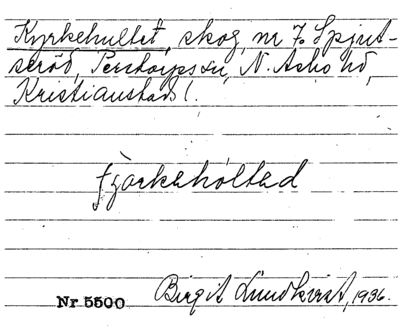 Kyrkehultet, skog, nr 7. Spjut-
seröd, Perstorps sn, N. Åsbo hd,
Kristianstads l.
fjǫrkehóltəd
Nr 5500 Birgit Lundkvist, 1936.